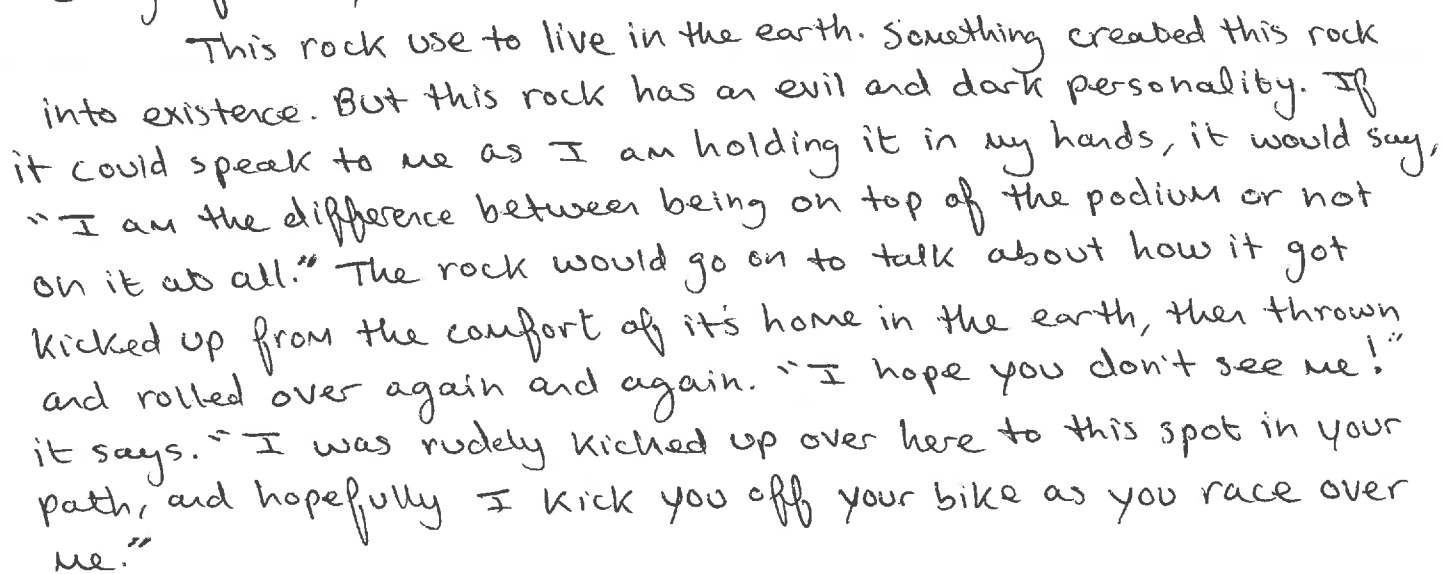 This rock use to live in the earth. Something created this rock
into existence. But this rock has an evil and dark personality. If
it could speak to me as I am holding it in my hands, it would say,
"I am the difference between being on top of the podium or not
on it at all." The rock would go on to talk about how it got
kicked up from the comfort of it's home in the earth, then thrown
and rolled over again and again. "I hope you don't see me!"
it says. "I was rudely kicked up over here to this spot in your
path, and hopefully I kick you off your bike as you race over
me."